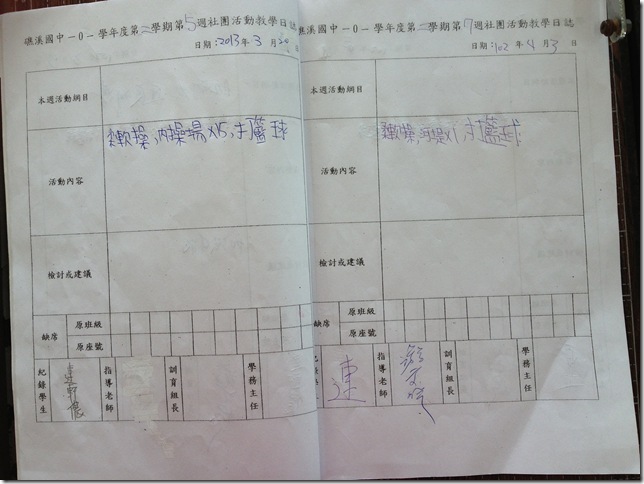 礁溪國中一0一學年度第二學期第5週社團活動教學日誌
日期:2013年3月20
本週活動綱目
活動內容
軟操,內操場X15,打籃球
檢討或建議
缺席
原班級
原座號
紀錄學生
指導老師
訓育組長
學務主任
礁溪國中一0一學年度第二學期第7週社團活動教學日誌
日期:102年4月3日
本週活動綱目
活動內容
軟操,打籃球
檢討或建議
缺席
原班級
原座號
連
指導老師
訓育組長
學務主任